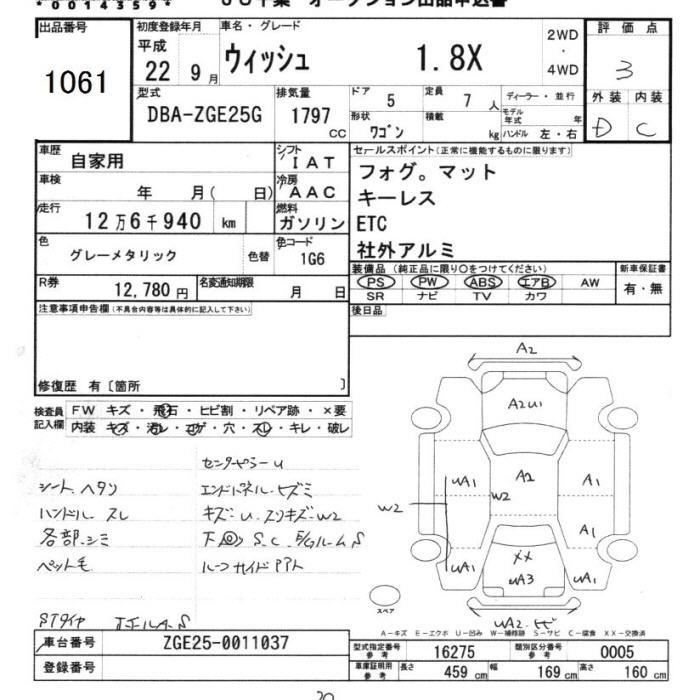 *0014359*
オークション出品申込書
出品番号
1061
初度登録年月
平成
22 9月
車名・グレード
ウィッシュ 1.8X
2WD
・
4WD
評価点
3
外装 内装
D C
型式
DBA-ZGE25G
排気量
1797
CC
ドア
5
定員
7 人
形状
ワゴン
積載
kg
ディーラー・並行
モデル年式 年
ハンドル 左・右
車歴
自家用
シフト
IAT
車検
年 月( 日)
冷房
AAC
走行
12万6千940 km
燃料
ガソリン
色
グレーメタリック
色替
色コード
1G6
R券
12,780円
名変通知期限
月 日
セールスポイント(正常に機能するものに限ります)
フォグ。マット
キーレス
ETC
社外アルミ
装備品(純正品に限り○をつけてください)
PS PW ABS エアB AW
SR ナビ TV カワ
新車保証書
有・無
後日品
注意事項申告欄(不具合内容等は具体的に記入して下さい)
修復歴 有〔箇所 〕
検査員
記入欄
FW キズ・飛石・ヒビ割・リペア跡・×要
内装 キズ・汚レ・コゲ・穴・スレ・キレ・破レ
シート ヘタリ
ハンドル スレ
各部 シミ
ペット毛
エンドパネル ヒズミ
キズ・U スリキズ・W2
A2
A2U1
UA1
A2
A1
W2
W2
A1
XX
UA3
UA1
UA1
スペア
A-キズ E-エクボ U-凹み W-補修跡 S-サビ C-腐食 XX-交換済
車台番号
ZGE25-0011037
登録番号
型式指定番号
参考
16275
類別区分番号
参考
0005
車庫証明用
参考
長さ
459 cm
幅
169 cm
高さ
160 cm